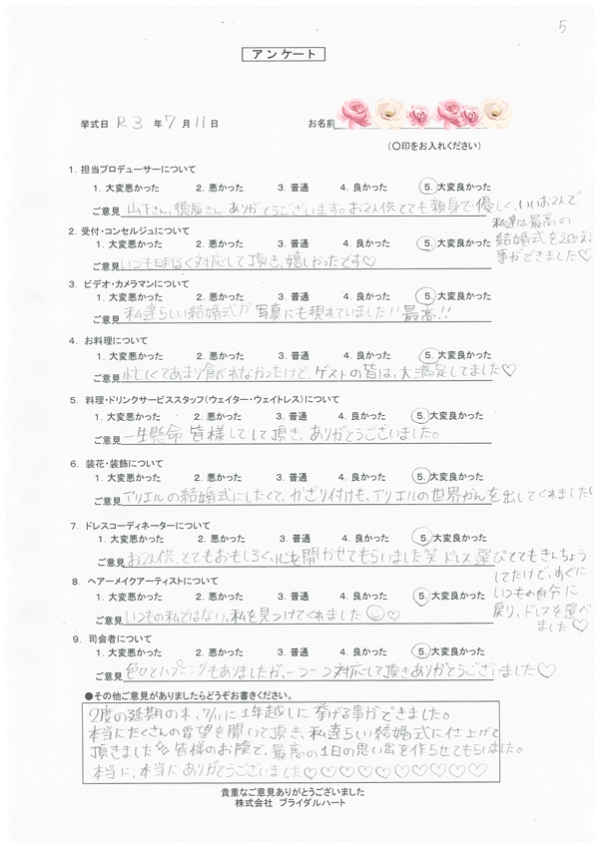 5
アンケート
挙式日 R3 年 7 月 11 日 お名前
(〇印をお入れください)
1. 担当プロデューサーについて
1. 大変悪かった 2. 悪かった 3. 普通 4. 良かった 5. 大変良かった
ご意見 山下さん、徳原さん、ありがとうございます。お2人供とても親身で優しく、いいお2人で
私達は最高の
結婚式を迎える
事ができました♡
2. 受付・コンセルジュについて
1. 大変悪かった 2. 悪かった 3. 普通 4. 良かった 5. 大変良かった
ご意見 いつも明るく対応して頂き、嬉しかったです♡
3. ビデオ・カメラマンについて
1. 大変悪かった 2. 悪かった 3. 普通 4. 良かった 5. 大変良かった
ご意見 私達らしい結婚式が写真にも現れていました!! 最高!!
4. お料理について
1. 大変悪かった 2. 悪かった 3. 普通 4. 良かった 5. 大変良かった
ご意見 忙しくてあまり食べれなかったけど、ゲストの皆は、大満足してました♡
5. 料理・ドリンクサービススタッフ(ウェイター・ウェイトレス)について
1. 大変悪かった 2. 悪かった 3. 普通 4. 良かった 5. 大変良かった
ご意見 一生懸命 皆様してして頂き、ありがとうございました。
6. 装花・装飾について
1. 大変悪かった 2. 悪かった 3. 普通 4. 良かった 5. 大変良かった
ご意見 アリエルの結婚式にしたくて、かざり付けも、アリエルの世界かんを出してくれました
7. ドレスコーディネーターについて
1. 大変悪かった 2. 悪かった 3. 普通 4. 良かった 5. 大変良かった
ご意見 お2人供、とてもおもしろく、心を開かせてもらいました笑 ドレス選びとてもきんちょう
してたけど、すぐに
いつもの自分に
戻り、ドレスを選べ
ました♡
8. ヘアーメイクアーティストについて
1. 大変悪かった 2. 悪かった 3. 普通 4. 良かった 5. 大変良かった
ご意見 いつもの私ではない、私を見つけてくれました ♡
9. 司会者について
1. 大変悪かった 2. 悪かった 3. 普通 4. 良かった 5. 大変良かった
ご意見 色々とハプニングもありましたが、一つ一つ対応して頂きありがとうございました♡
●その他ご意見がありましたらどうぞお書きください。
2度の延期の末、7/11に1年越しに挙げる事ができました。
本当にたくさんの要望を聞いて頂き、私達らしい結婚式に仕上げて
頂きました 皆様のお陰で、最高の1日の思い出を作らせてもらいました。
本当に、本当にありがとうございました♡♡♡♡♡♡♡♡♡♡
貴重なご意見ありがとうございました
株式会社 ブライダルハート